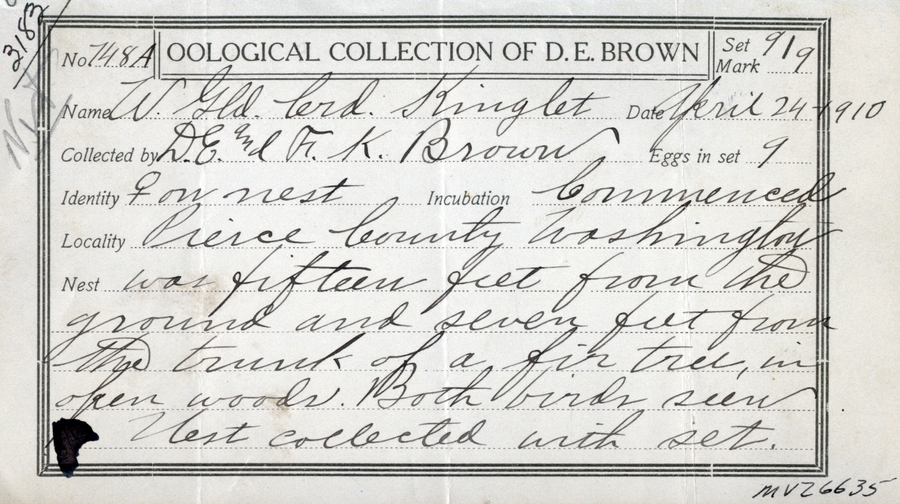 3183
No 748A OOLOGICAL COLLECTION OF D. E. BROWN Set Mark 9/9
Name W. Gld. Crd. Kinglet Date April 24-1910
Collected by D.E. and F. K. Brown Eggs in set 9
Identity ♀ on nest Incubation Commenced
Locality Pierce County Washington
Nest was fifteen feet from the
ground and seven feet from
the trunk of a fir tree, in
open woods. Both birds seen
Nest collected with set.
MVZ6635